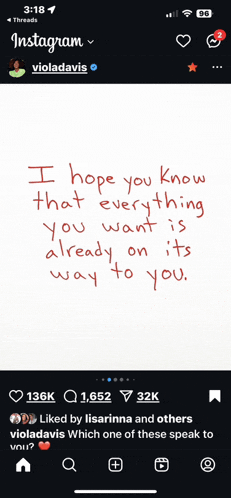 3:18
96
◀ Threads
Instagram
2
violadavis
I hope you know
that everything
you want is
already on its
way to you.
136K 1,652 32K
Liked by lisarinna and others
violadavis Which one of these speak to
you? ❤️